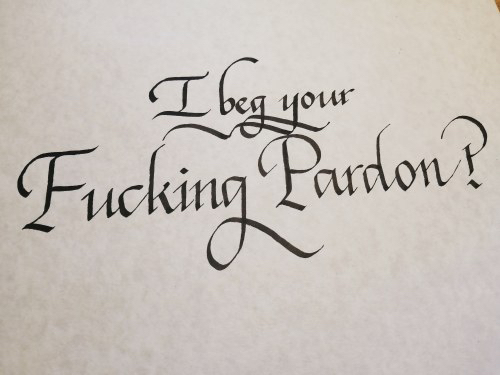 I beg your
Fucking Pardon?